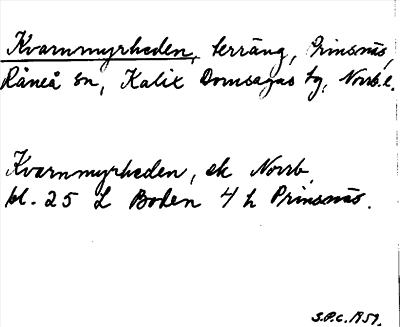 Kvarnmyrheden, terräng, Prinsnäs,
Råneå sn, Kalix Domsagas tg, Norrb. l.
Kvarnmyrheden, ek Norrb.
bl. 25 L Boden 4 h Prinsnäs.
S.P.C. 1959.